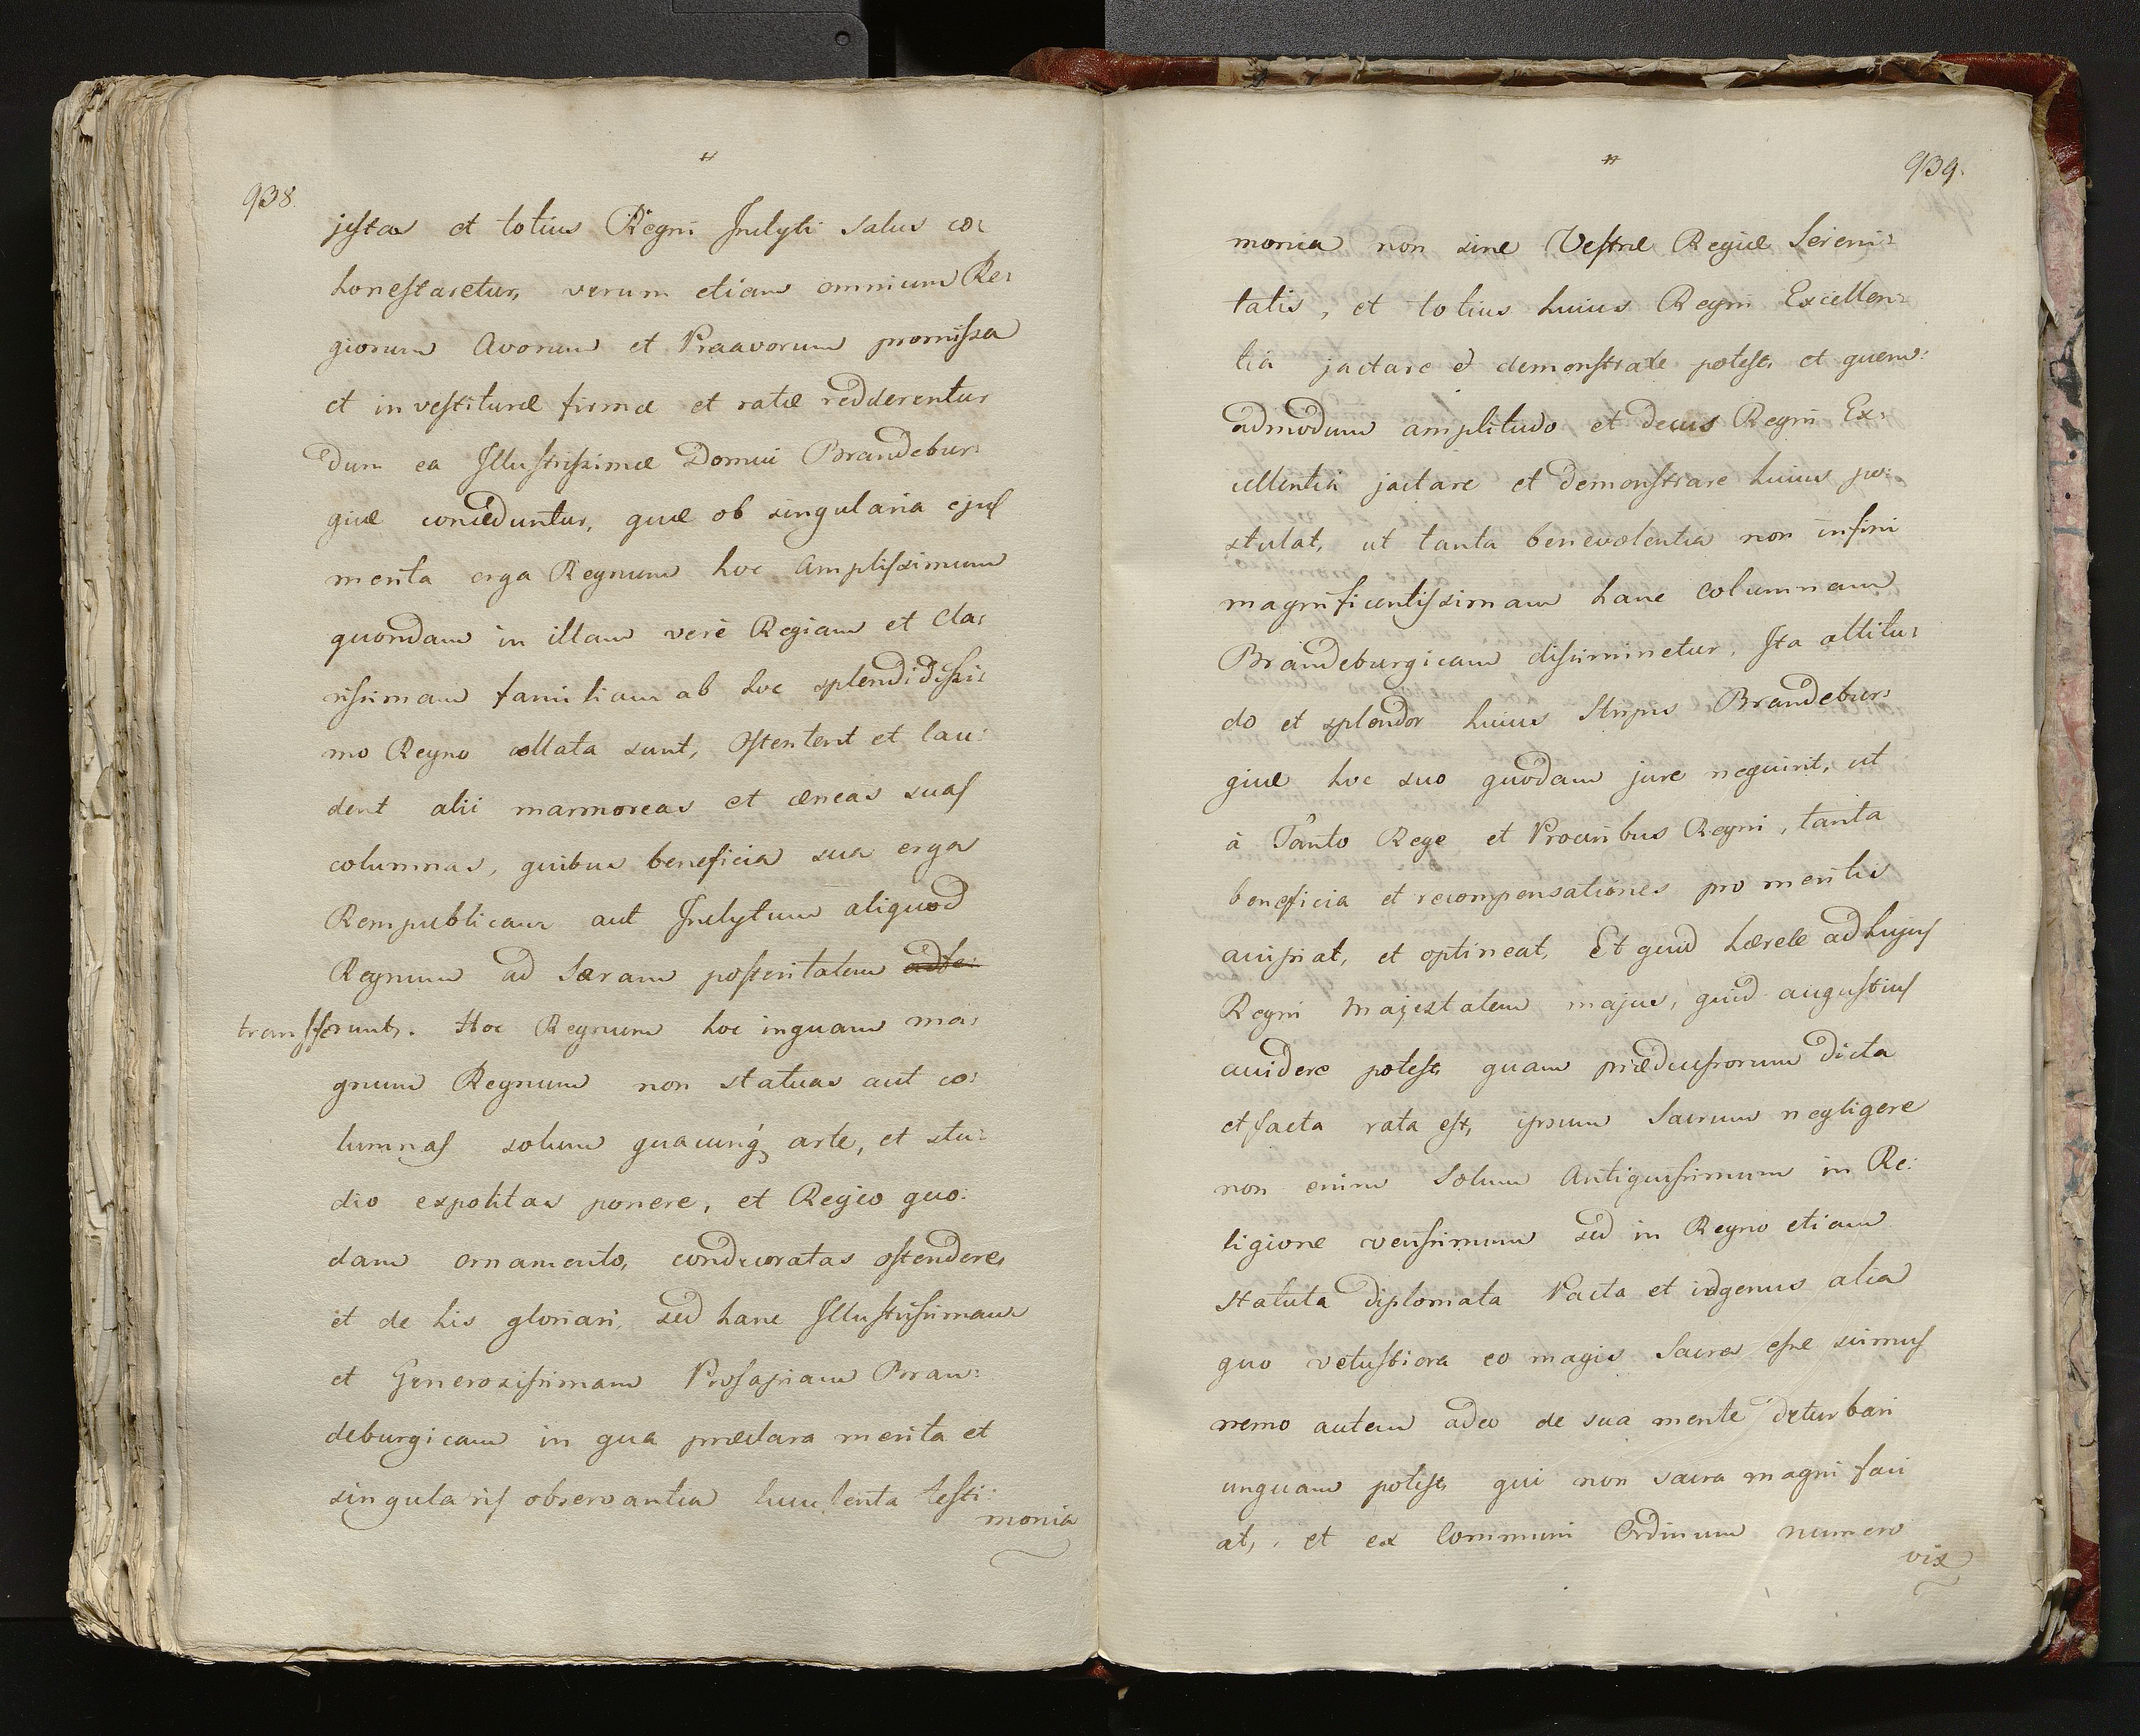 938.
jestas et totius Regni Inclyti salus co:
honestaretur, verum etiam omnium Re:
giorum Avorum et Praavorum promissa
et investituræ firmæ et ratæ redderentur
dum ea Illustrissimæ Domui Brandebur:
giæ conceduntur, quæ ob singularia ejus
merita erga Regnum hoc Amplissimum
quondam in illam verè Regiam et Cla:
rissimam familiam ab hoc splendidissi:
mo Regno collata sunt, Ostentent et lau:
dent alii marmoreas et æneas suas
columnas, quibus beneficia sua erga
Rempublicam aut Inclytum aliquod
Regnum ad Seram posteritatem
transferunt. Hoc Regnum hoc inquam ma:
gnum Regnum non statuas aut co:
lumnas solum quacunq, arte, et stu:
dio expolitas ponere, et Regio quo:
dam ornamento, condecoratas ostendere,
et de his gloriari, sed hanc Illustrissimam
et Generosissimam Prosapiam Bran:
deburgicam in qua præclara merita et
singularis observantia luculenta testi:
monia
939.
monia non sine Vestræ Regiæ Sereni:
tatis, et totius huius Regni Excellen:
tia jactare & demonstrare potest, et quem:
admodum amplitudo et decus Regni Ex:
cellentia jactare et demonstrare huius po:
stulat, ut tanta benevolentia non infini
magnificentissimam hanc Columnam
Brandeburgicam disseminetur, Ita altitu:
do et splendor huius Stirpis Brandebur:
giæ hoc suo quodam jure requirit, ut
à Tanto Rege et Proceribus Regni, tanta
beneficia et recompensationes pro meritis
accipiat, et optineat, Et quid hærele ad hujus
Regni Majestatem majus, quid augustius
accidere potest, quam prædecessorum dicta
et facta rata est, ipsum Sacrum negligere
non enim Solum Antiquissimum in Re:
ligione verissimum sed in Regno etiam
Statuta diplomata Pacta et idgenus alia
quo vetustiora eo magis Sacra esse scimus
nemo autem adeo de sua mente deturbari
unquam potest, qui non sacra magni faci
at, et ex Communi Ordinum numero
vix